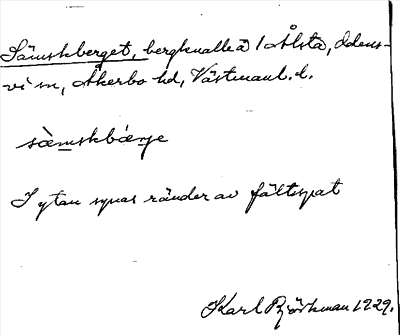 Sämskberget, bergknalle å 1 Ålsta, Odens-
vi sn, Åkerbo hd, Västmanl. d.
sämskbärje
I ytan synas ränder av fältspat
Karl Björkman 1929.